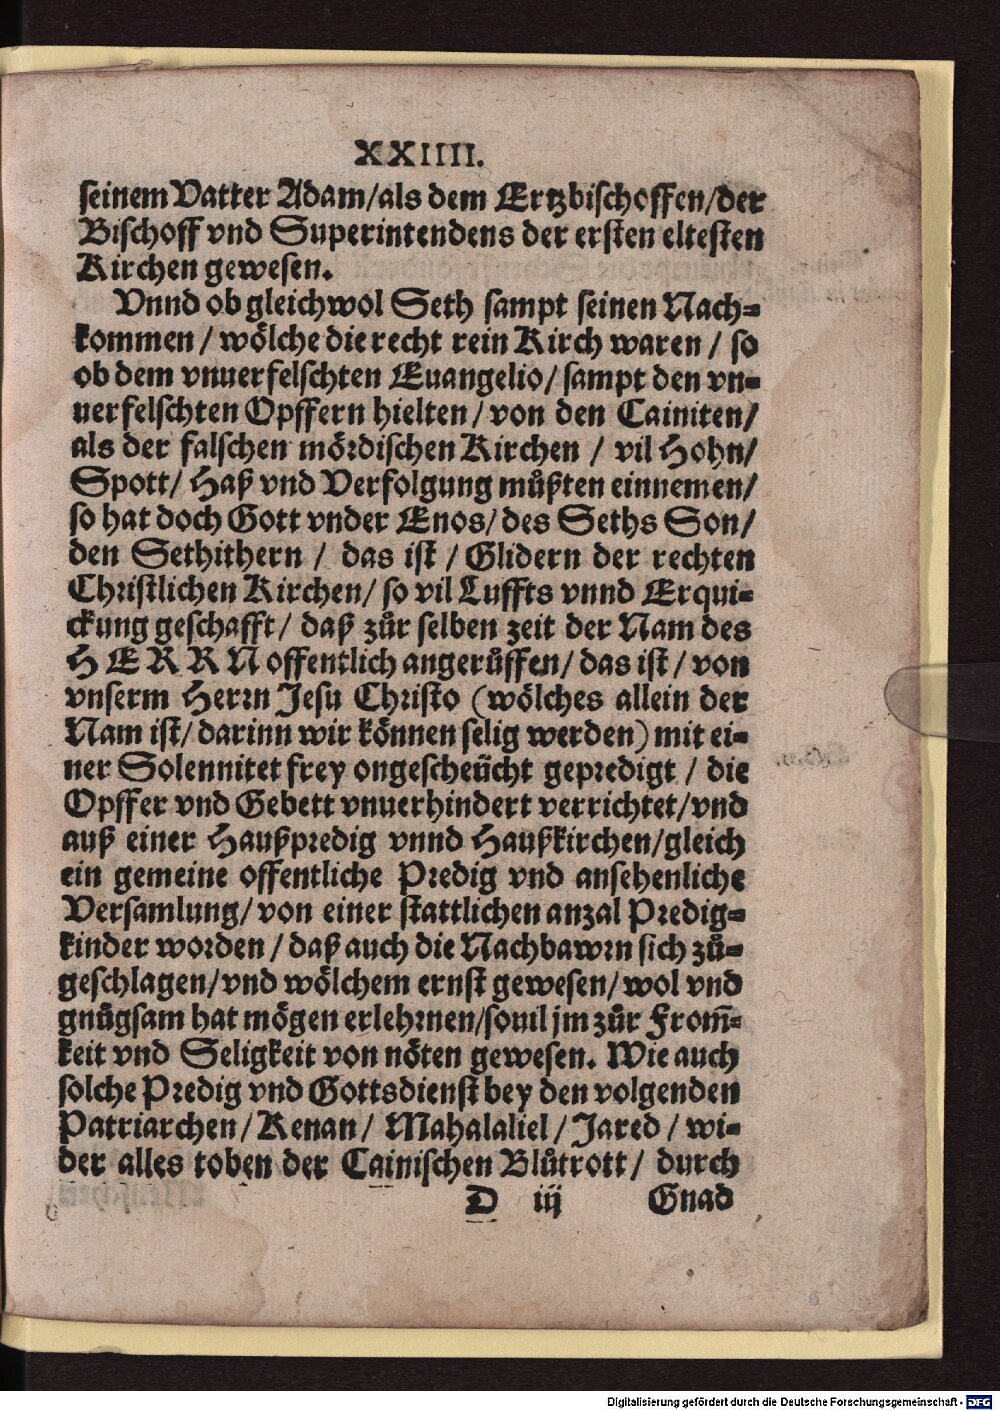 XXIIII.
seinem Vatter Adam/als dem Ertzbischoffen/der
Bischoff vnd Superintendens der ersten eltesten
Kirchen gewesen.
Vnnd ob gleichwol Seth sampt seinen Nach-
kommen / wölche die recht rein Kirch waren / so
ob dem vnuerfelschten Euangelio/ sampt den vn-
uerfelschten Opffern hielten / von den Cainiten/
als der falschen mördischen Kirchen / vil Hohn/
Spott/ Haß vnd Verfolgung můßten einnemen/
so hat doch Gott vnder Enos/ des Seths Son/
den Sethithern / das ist / Glidern der rechten
Christlichen Kirchen/ so vil Luffts vnnd Erqui-
ckung geschafft/ daß zůr selben zeit der Nam des
HERRN offentlich angerůffen/ das ist / von
vnserm Herrn Jesu Christo (wölches allein der
Nam ist/ darinn wir können selig werden) mit ei-
ner Solennitet frey ongescheücht gepredigt / die
Opffer vnd Gebett vnuerhindert verrichtet/vnd
auß einer Haußpredig vnnd Haußkirchen/gleich
ein gemeine offentliche Predig vnd ansehenliche
Versamlung/ von einer stattlichen anzal Predig-
kinder worden / daß auch die Nachbawrn sich zů-
geschlagen/ vnd wölchem ernst gewesen/ wol vnd
gnůgsam hat mögen erlehrnen/souil jm zůr From̄-
keit vnd Seligkeit von nöten gewesen. Wie auch
solche Predig vnd Gottsdienst bey den volgenden
Patriarchen/ Kenan/ Mahalaliel / Jared / wi-
der alles toben der Cainischen Blůtrott/ durch
D iij Gnad
Digitalisierung gefördert durch die Deutsche Forschungsgemeinschaft - DFG